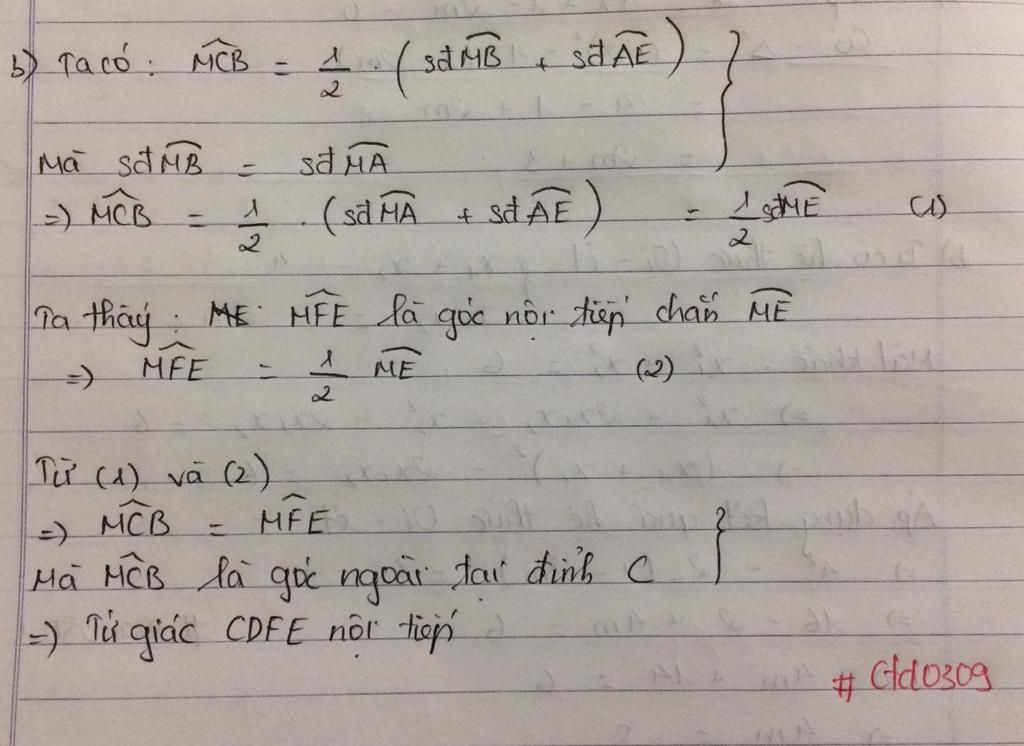 b) Ta có : \widehat{MCB} = \frac{1}{2} . (sđ\overset{\frown}{MB} + sđ\overset{\frown}{AE})
Mà sđ\overset{\frown}{MB} = sđ\overset{\frown}{MA}
=) \widehat{MCB} = \frac{1}{2} . (sđ\overset{\frown}{MA} + sđ\overset{\frown}{AE}) = \frac{1}{2} sđ\overset{\frown}{ME} (1)
Ta thấy : \widehat{MFE} là góc nội tiếp chắn \overset{\frown}{ME}
=) \widehat{MFE} = \frac{1}{2} \overset{\frown}{ME} (2)
Từ (1) và (2)
=) \widehat{MCB} = \widehat{MFE}
Mà \widehat{MCB} là góc ngoài tại đỉnh C
=) Tứ giác CDFE nội tiếp
# Ctd0309